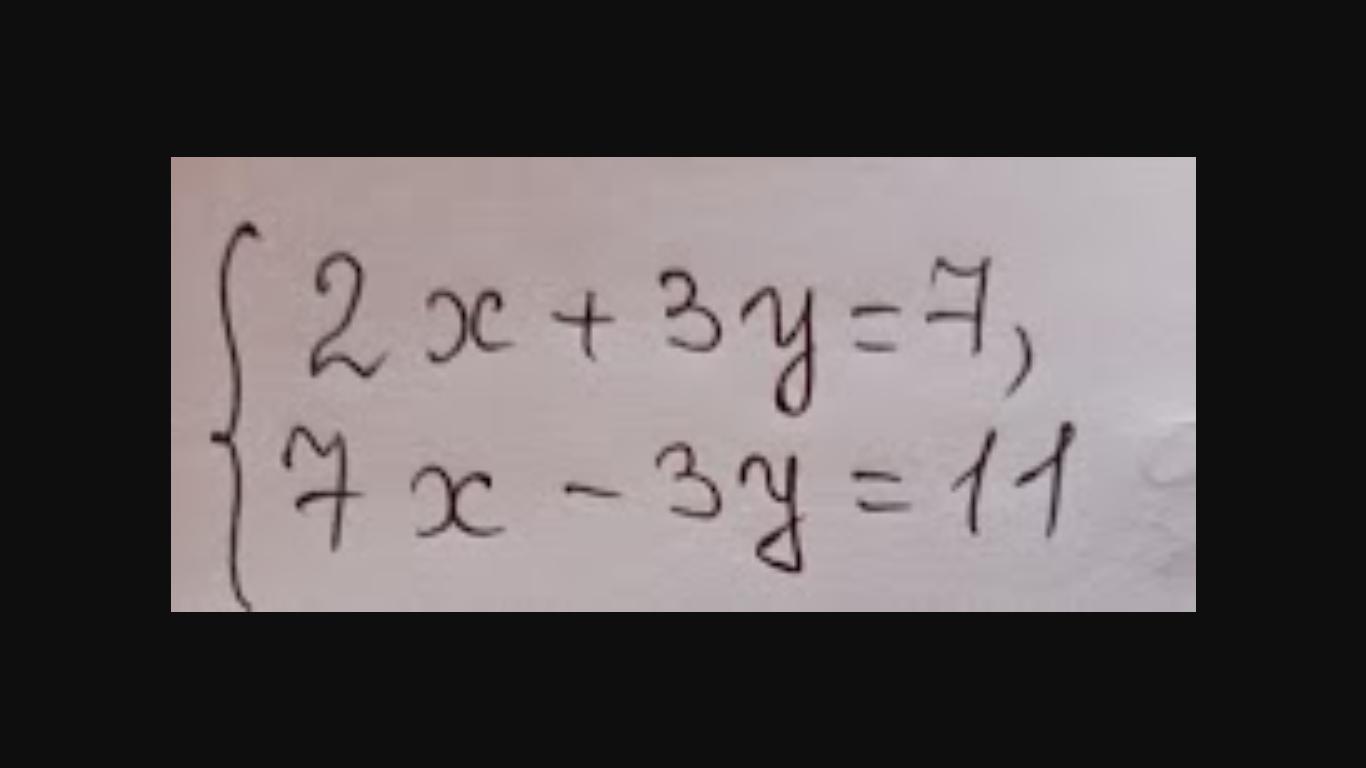 2x + 3y = 7,
7x - 3y = 11